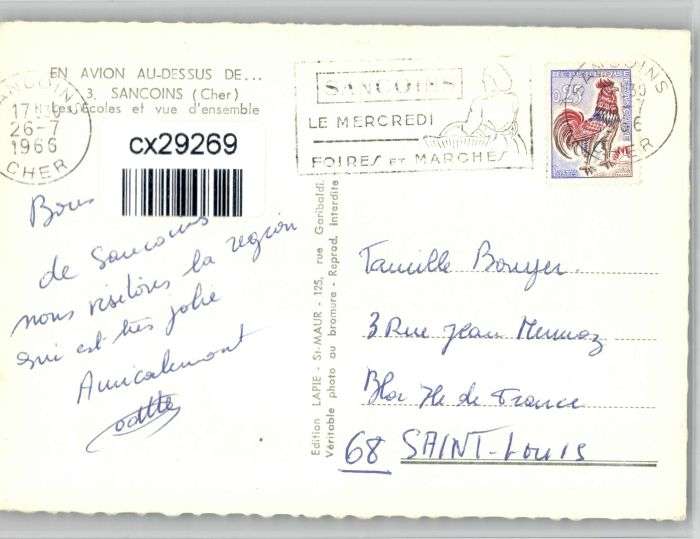 EN AVION AU-DESSUS DE...
3. SANCOINS (Cher)
Les Écoles et vue d'ensemble
SANCOINS
26-7
1966
CHER
cx29269
SANCOINS
LE MERCREDI
FOIRES ET MARCHES
0,25
SANCOINS
CHER
Bons
de Sancoins
nous visitons la region
qui est très jolie
Amicalement
Odette
Edition LAPIE - St-MAUR - 125, rue Garibaldi.
Véritable photo au bromure - Reprod. Interdite
Famille Bouyer
3 Rue Jean Mermoz
Bloc Ile de France
68 SAINT-Louis